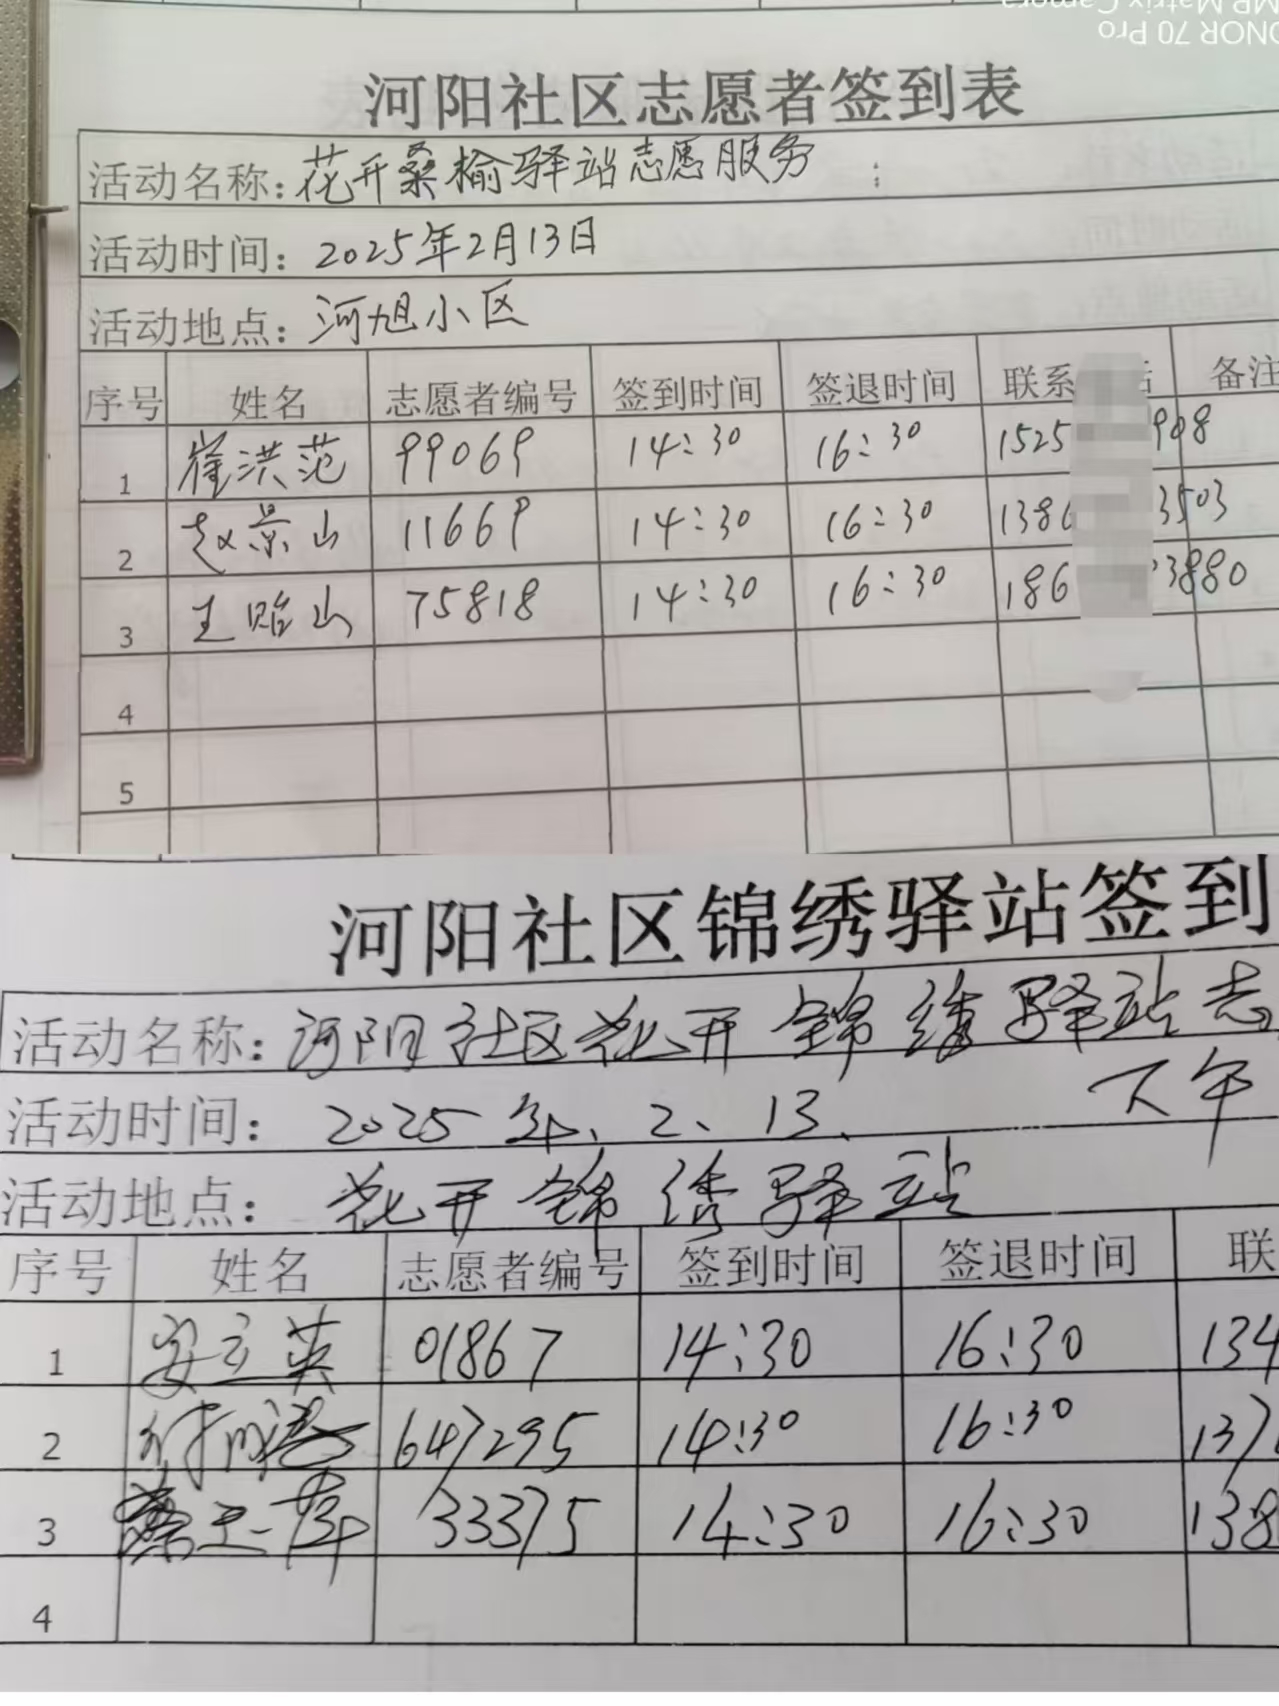 河阳社区志愿者签到表
活动名称：花开桑榆驿站志愿服务
活动时间：2025年2月13日
活动地点：河旭小区
序号 姓名 志愿者编号 签到时间 签退时间 联系 话 备注
1 崔洪范 99069 14:30 16:30 1525 908
2 赵景山 11669 14:30 16:30 138 3503
3 王贻山 75818 14:30 16:30 186 3880
4
5
河阳社区锦绣驿站签到
活动名称：河阳社区花开锦绣驿站志
活动时间：2025年、2、13、 下午
活动地点：花开锦绣驿站
序号 姓名 志愿者编号 签到时间 签退时间 联
1 安立英 01867 14:30 16:30 134
2 647295 14:30 16:30 137
3 33375 14:30 16:30 138
4